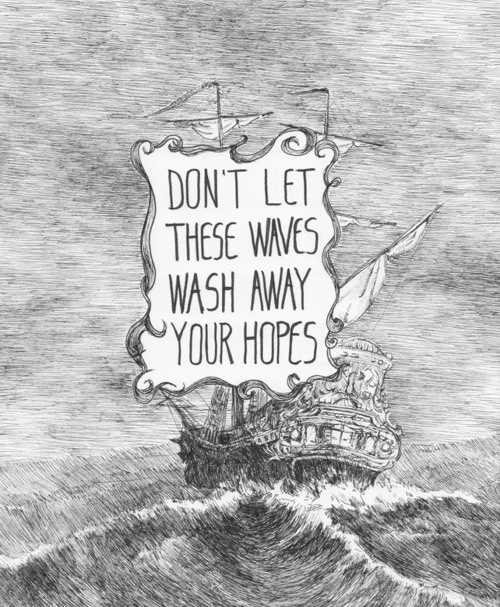 DON'T LET
THESE WAVES
WASH AWAY
YOUR HOPES